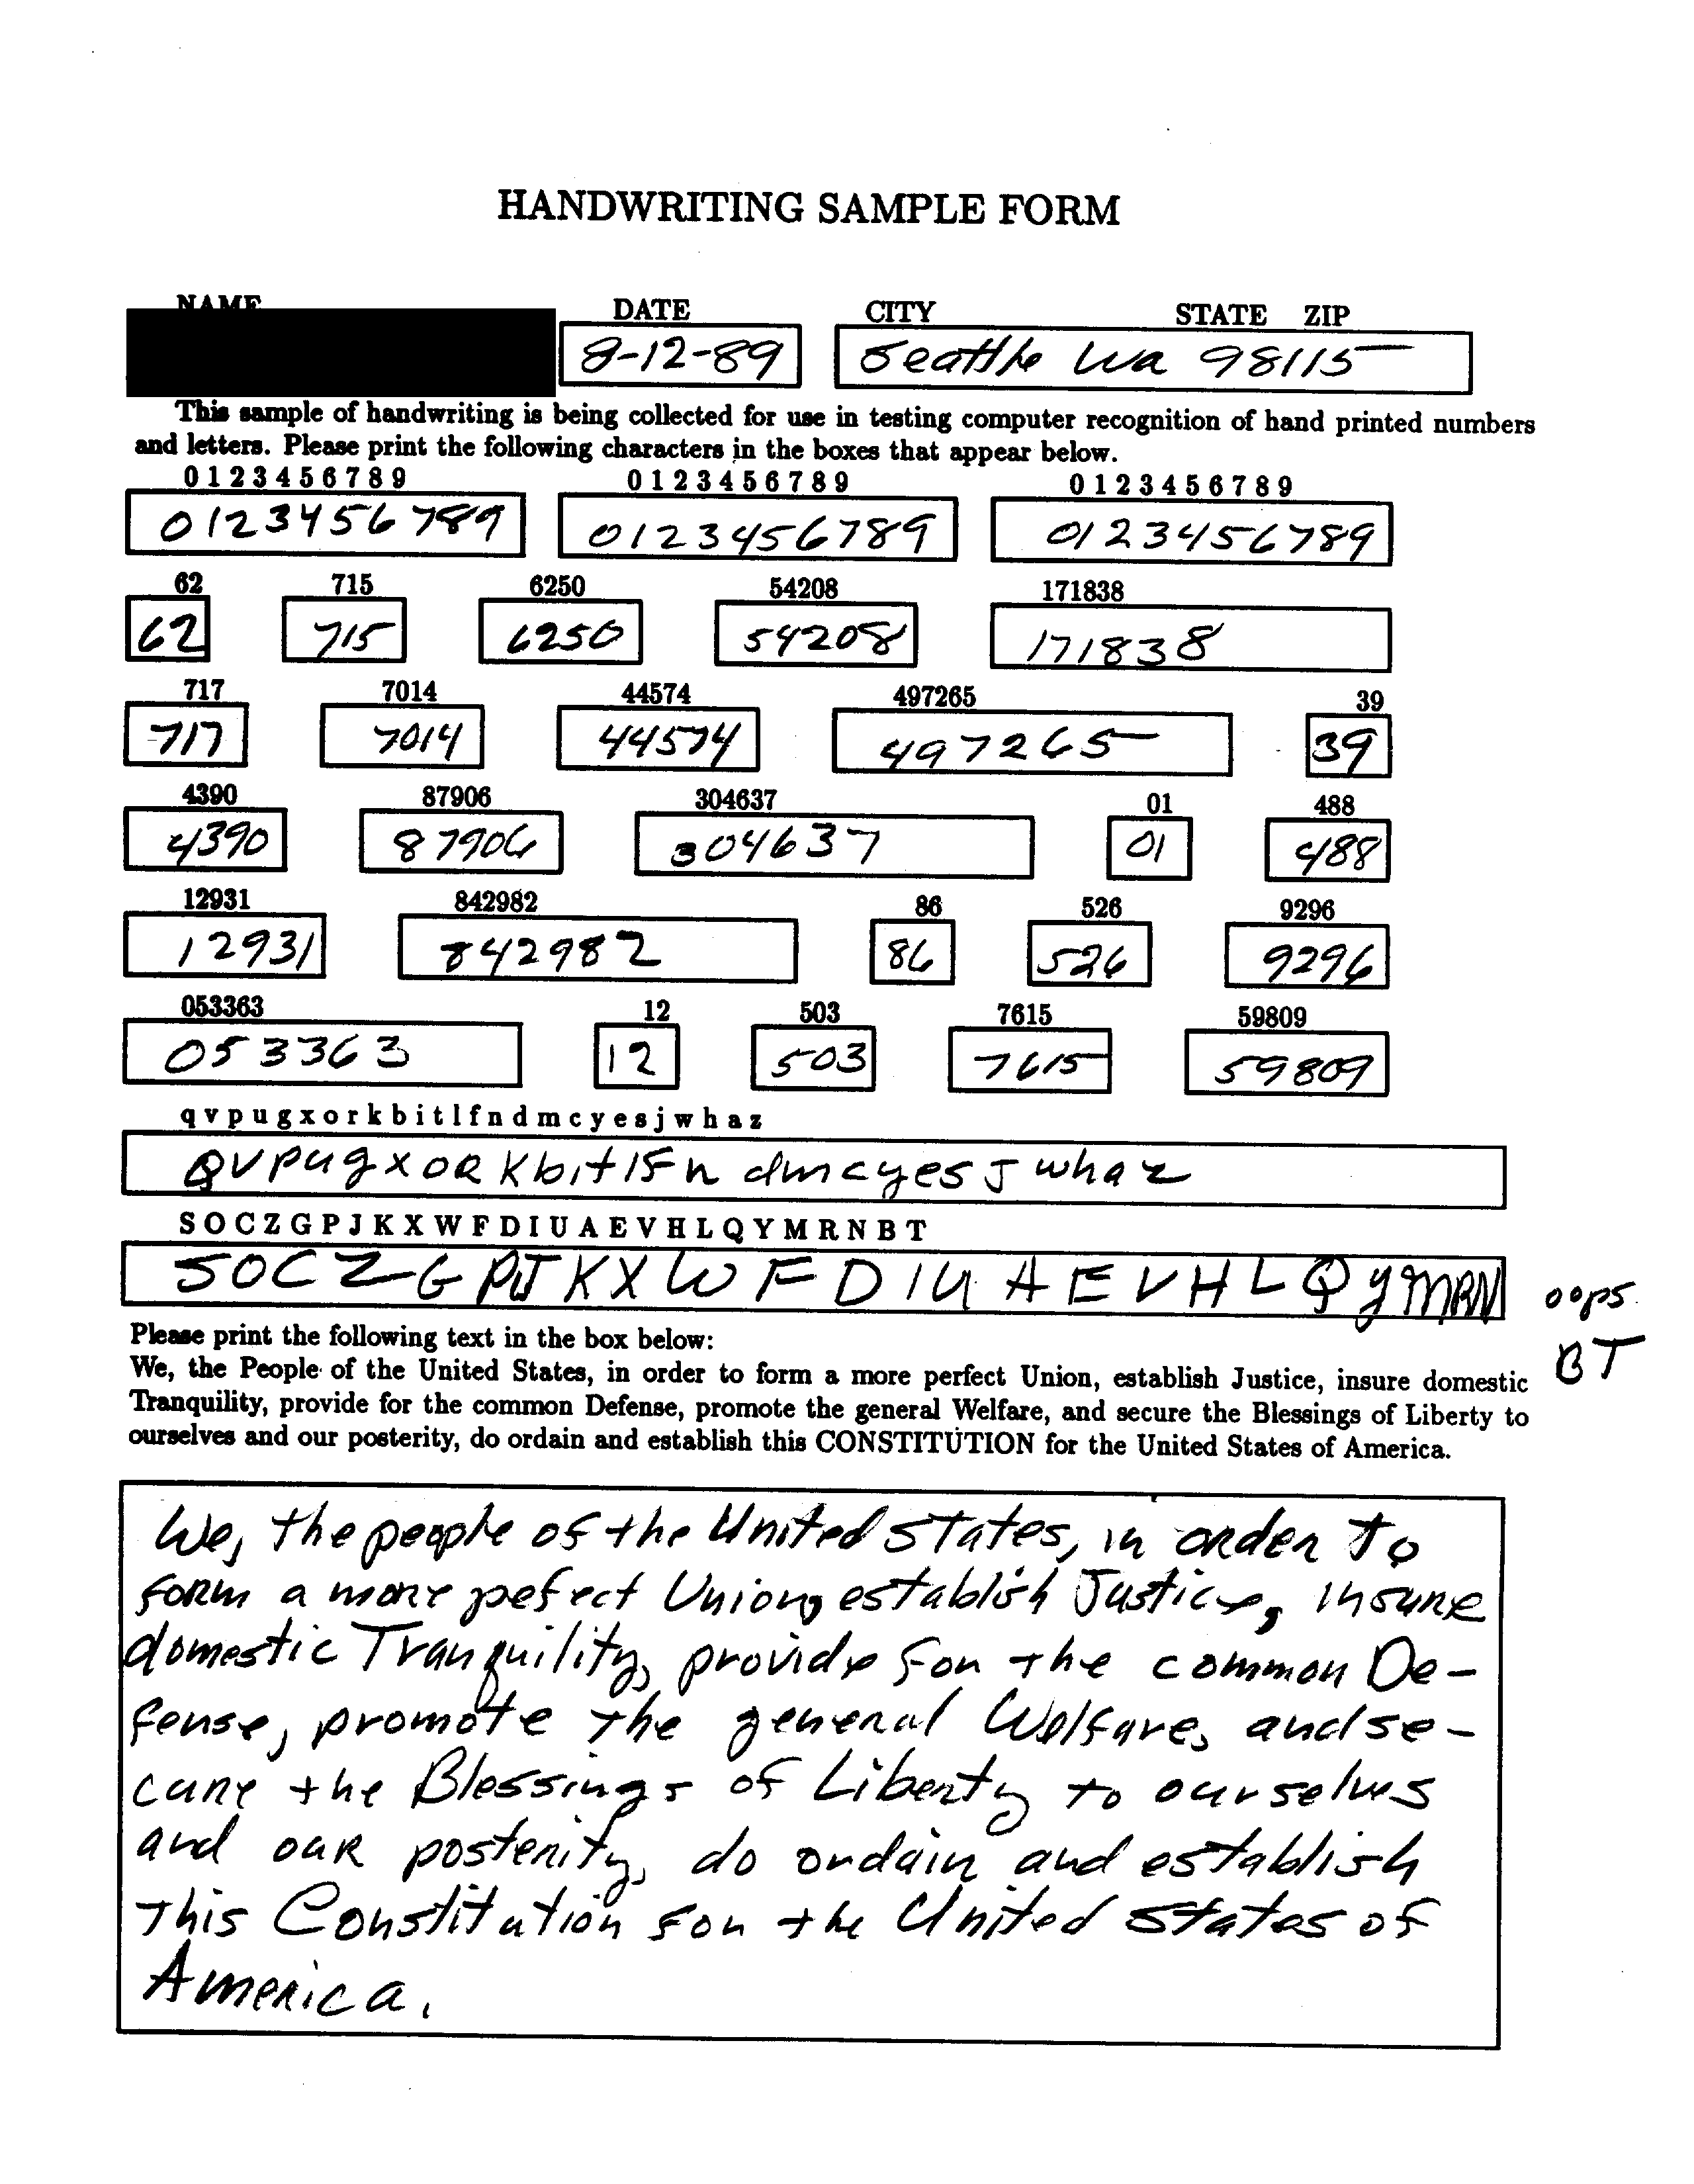 HANDWRITING SAMPLE FORM
NAME DATE CITY STATE ZIP
8-12-89 Seattle Wa 98115
This sample of handwriting is being collected for use in testing computer recognition of hand printed numbers
and letters. Please print the following characters in the boxes that appear below.
0 1 2 3 4 5 6 7 8 9 0 1 2 3 4 5 6 7 8 9 0 1 2 3 4 5 6 7 8 9
0123456789 0123456789 0123456789
62 715 6250 54208 171838
62 715 6250 54208 171838
717 7014 44574 497265 39
717 7014 44574 497265 39
4390 87906 304637 01 488
4390 87906 304637 01 488
12931 842982 86 526 9296
12931 842982 86 526 9296
053363 12 503 7615 59809
053363 12 503 7615 59809
q v p u g x o r k b i t l f n d m c y e s j w h a z
QVpugxORKbitlFn dmcyesJwhaz
S O C Z G P J K X W F D I U A E V H L Q Y M R N B T
SOCZGPJKXWFDIUAEVHLQYMRN oops
BT
Please print the following text in the box below:
We, the People of the United States, in order to form a more perfect Union, establish Justice, insure domestic
Tranquility, provide for the common Defense, promote the general Welfare, and secure the Blessings of Liberty to
ourselves and our posterity, do ordain and establish this CONSTITUTION for the United States of America.
We, the people of the United States, in order to
form a more pefect Union, establish Justice, insure
domestic Tranquility, provide for the common De-
fense, promote the general Welfare, and se-
cure the Blessings of Liberty to ourselves
and our posterity, do ordain and establish
This Constitution for the United States of
America.